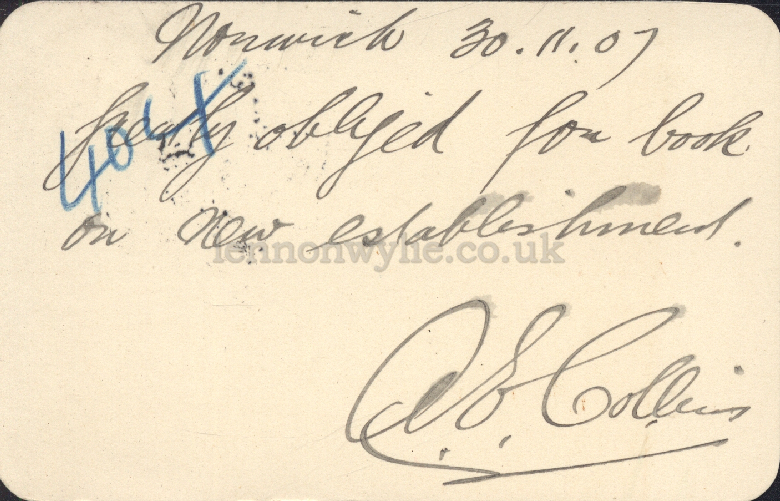 Norwich 30.11.07
greatly obliged for book
on new establishment.
A. E. Collins
404
lennonwylie.co.uk